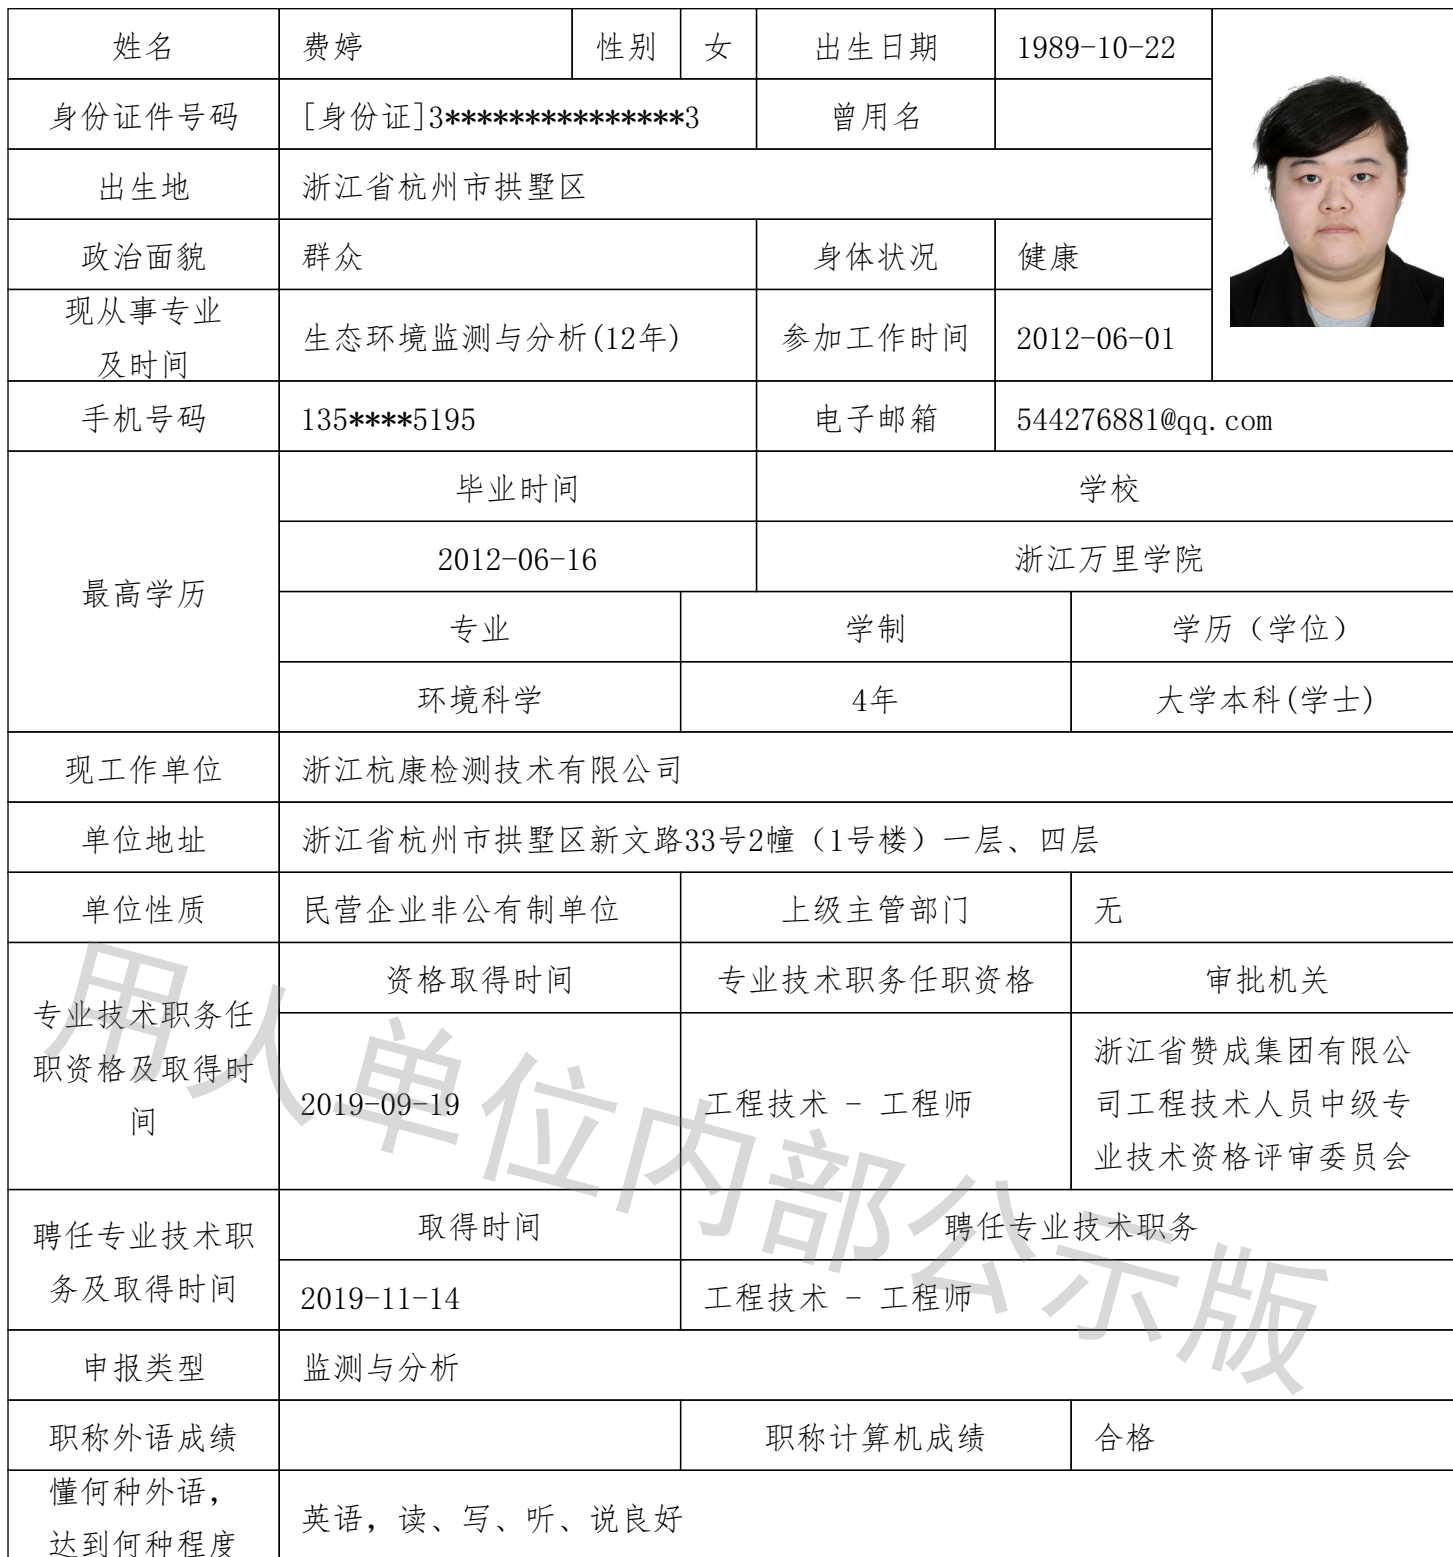 姓名 费婷 性别 女 出生日期 1989-10-22
身份证件号码 [身份证]3***************3 曾用名
出生地 浙江省杭州市拱墅区
政治面貌 群众 身体状况 健康
现从事专业
及时间 生态环境监测与分析(12年) 参加工作时间 2012-06-01
手机号码 135****5195 电子邮箱 544276881@qq.com
最高学历 毕业时间 学校
2012-06-16 浙江万里学院
专业 学制 学历（学位）
环境科学 4年 大学本科(学士)
现工作单位 浙江杭康检测技术有限公司
单位地址 浙江省杭州市拱墅区新文路33号2幢（1号楼）一层、四层
单位性质 民营企业非公有制单位 上级主管部门 无
专业技术职务任
职资格及取得时
间
资格取得时间 专业技术职务任职资格 审批机关
2019-09-19 工程技术 - 工程师 浙江省赞成集团有限公
司工程技术人员中级专
业技术资格评审委员会
聘任专业技术职
务及取得时间
取得时间 聘任专业技术职务
2019-11-14 工程技术 - 工程师
申报类型 监测与分析
职称外语成绩 职称计算机成绩 合格
懂何种外语，
达到何种程度 英语，读、写、听、说良好
用人单位内部公示版